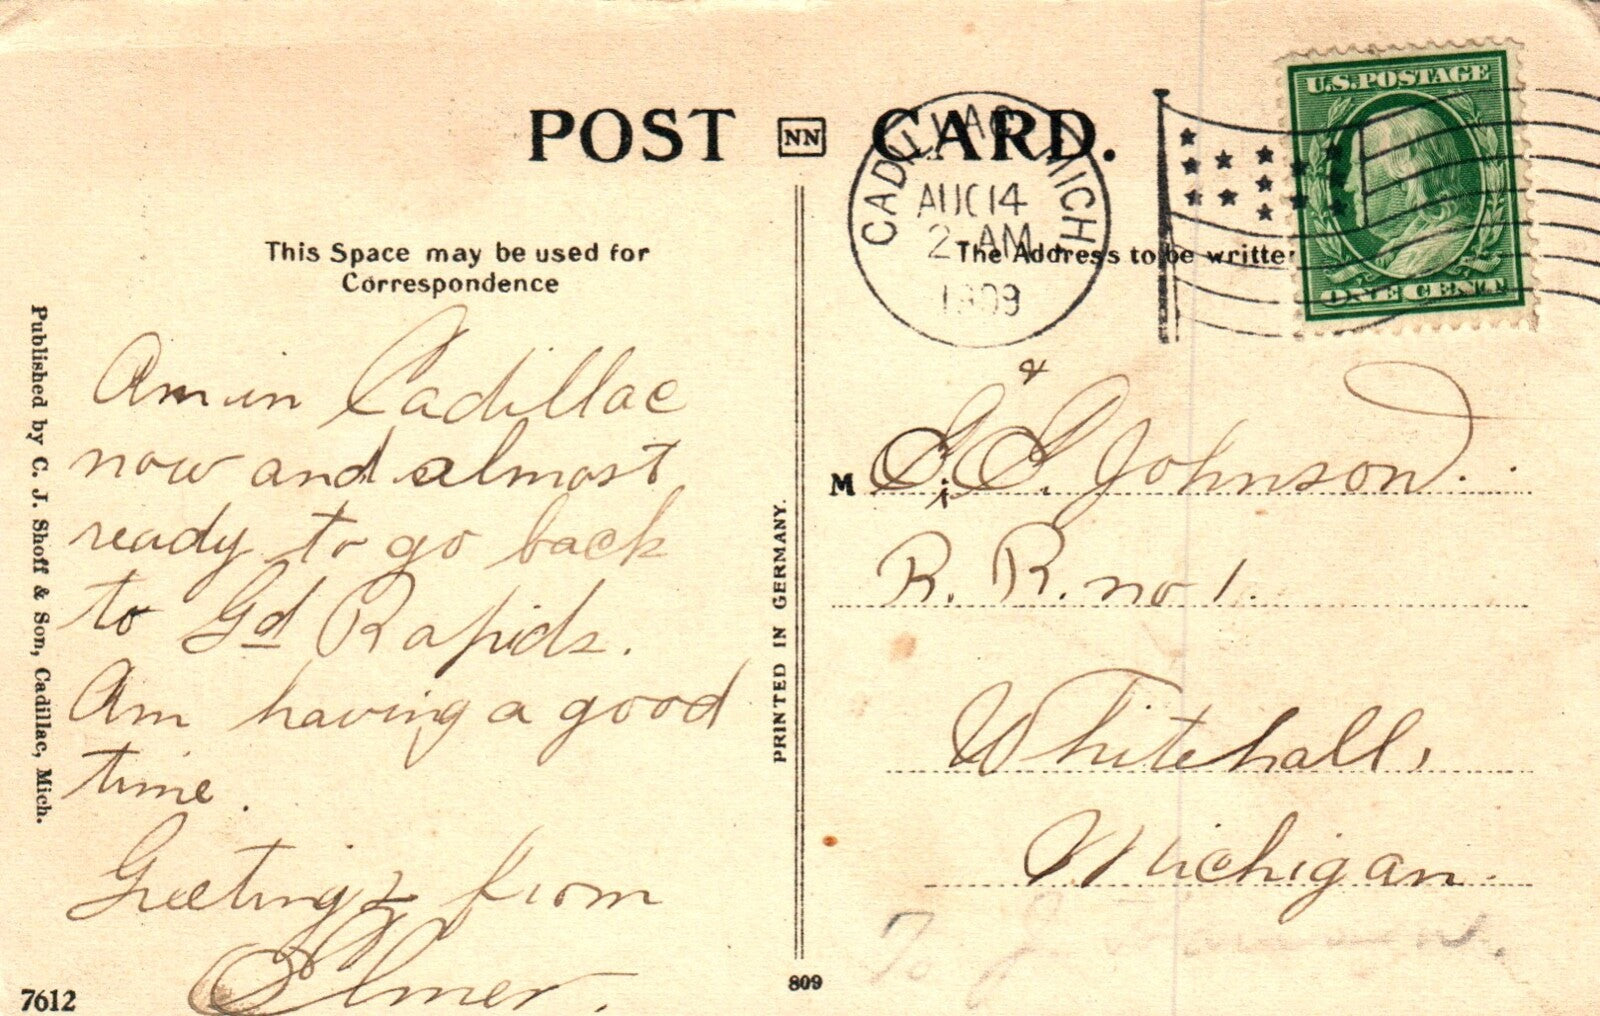 POST NN CARD.
CADILLAC, MICH
AUG 14
2 - AM
1909
U.S. POSTAGE
ONE CENT
This Space may be used for
Correspondence
The Address to be written
Am in Cadillac
now and almost
ready to go back
to Gd Rapids.
Am having a good
time.
Greetings from
Elmer.
Published by C. J. Shoff & Son, Cadillac, Mich.
PRINTED IN GERMANY.
M G. G. Johnson.
R. R. no 1.
Whitehall,
Michigan.
To J.
7612
809